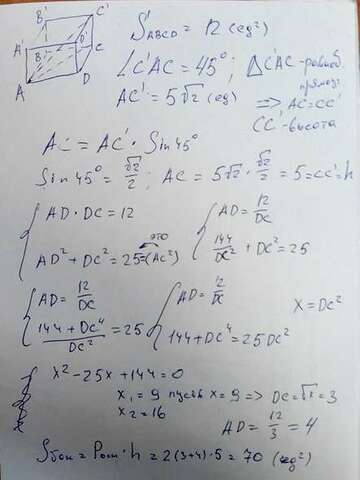 B' C'
A' D'
B C
A D
S_ABCD = 12 (ед²)
∠C'AC = 45°; △C'AC - равноб. прямоуг.
AC' = 5√2 (ед) => AC = CC'
CC' - высота
AC = AC' · Sin 45°
Sin 45° = √2/2; AC = 5√2 · √2/2 = 5 = CC' = h
{ AD · DC = 12
AD² + DC² = 25 = (AC²) это
{ AD = 12/DC
144/DC² + DC² = 25
{ AD = 12/DC
(144 + DC⁴)/DC² = 25
{ AD = 12/DC
144 + DC⁴ = 25DC²
X = DC²
x² - 25x + 144 = 0
x₁ = 9 пусть x = 9 => DC = √x = 3
x₂ = 16
AD = 12/3 = 4
Sбок = Pосн · h = 2(3+4) · 5 = 70 (ед²)